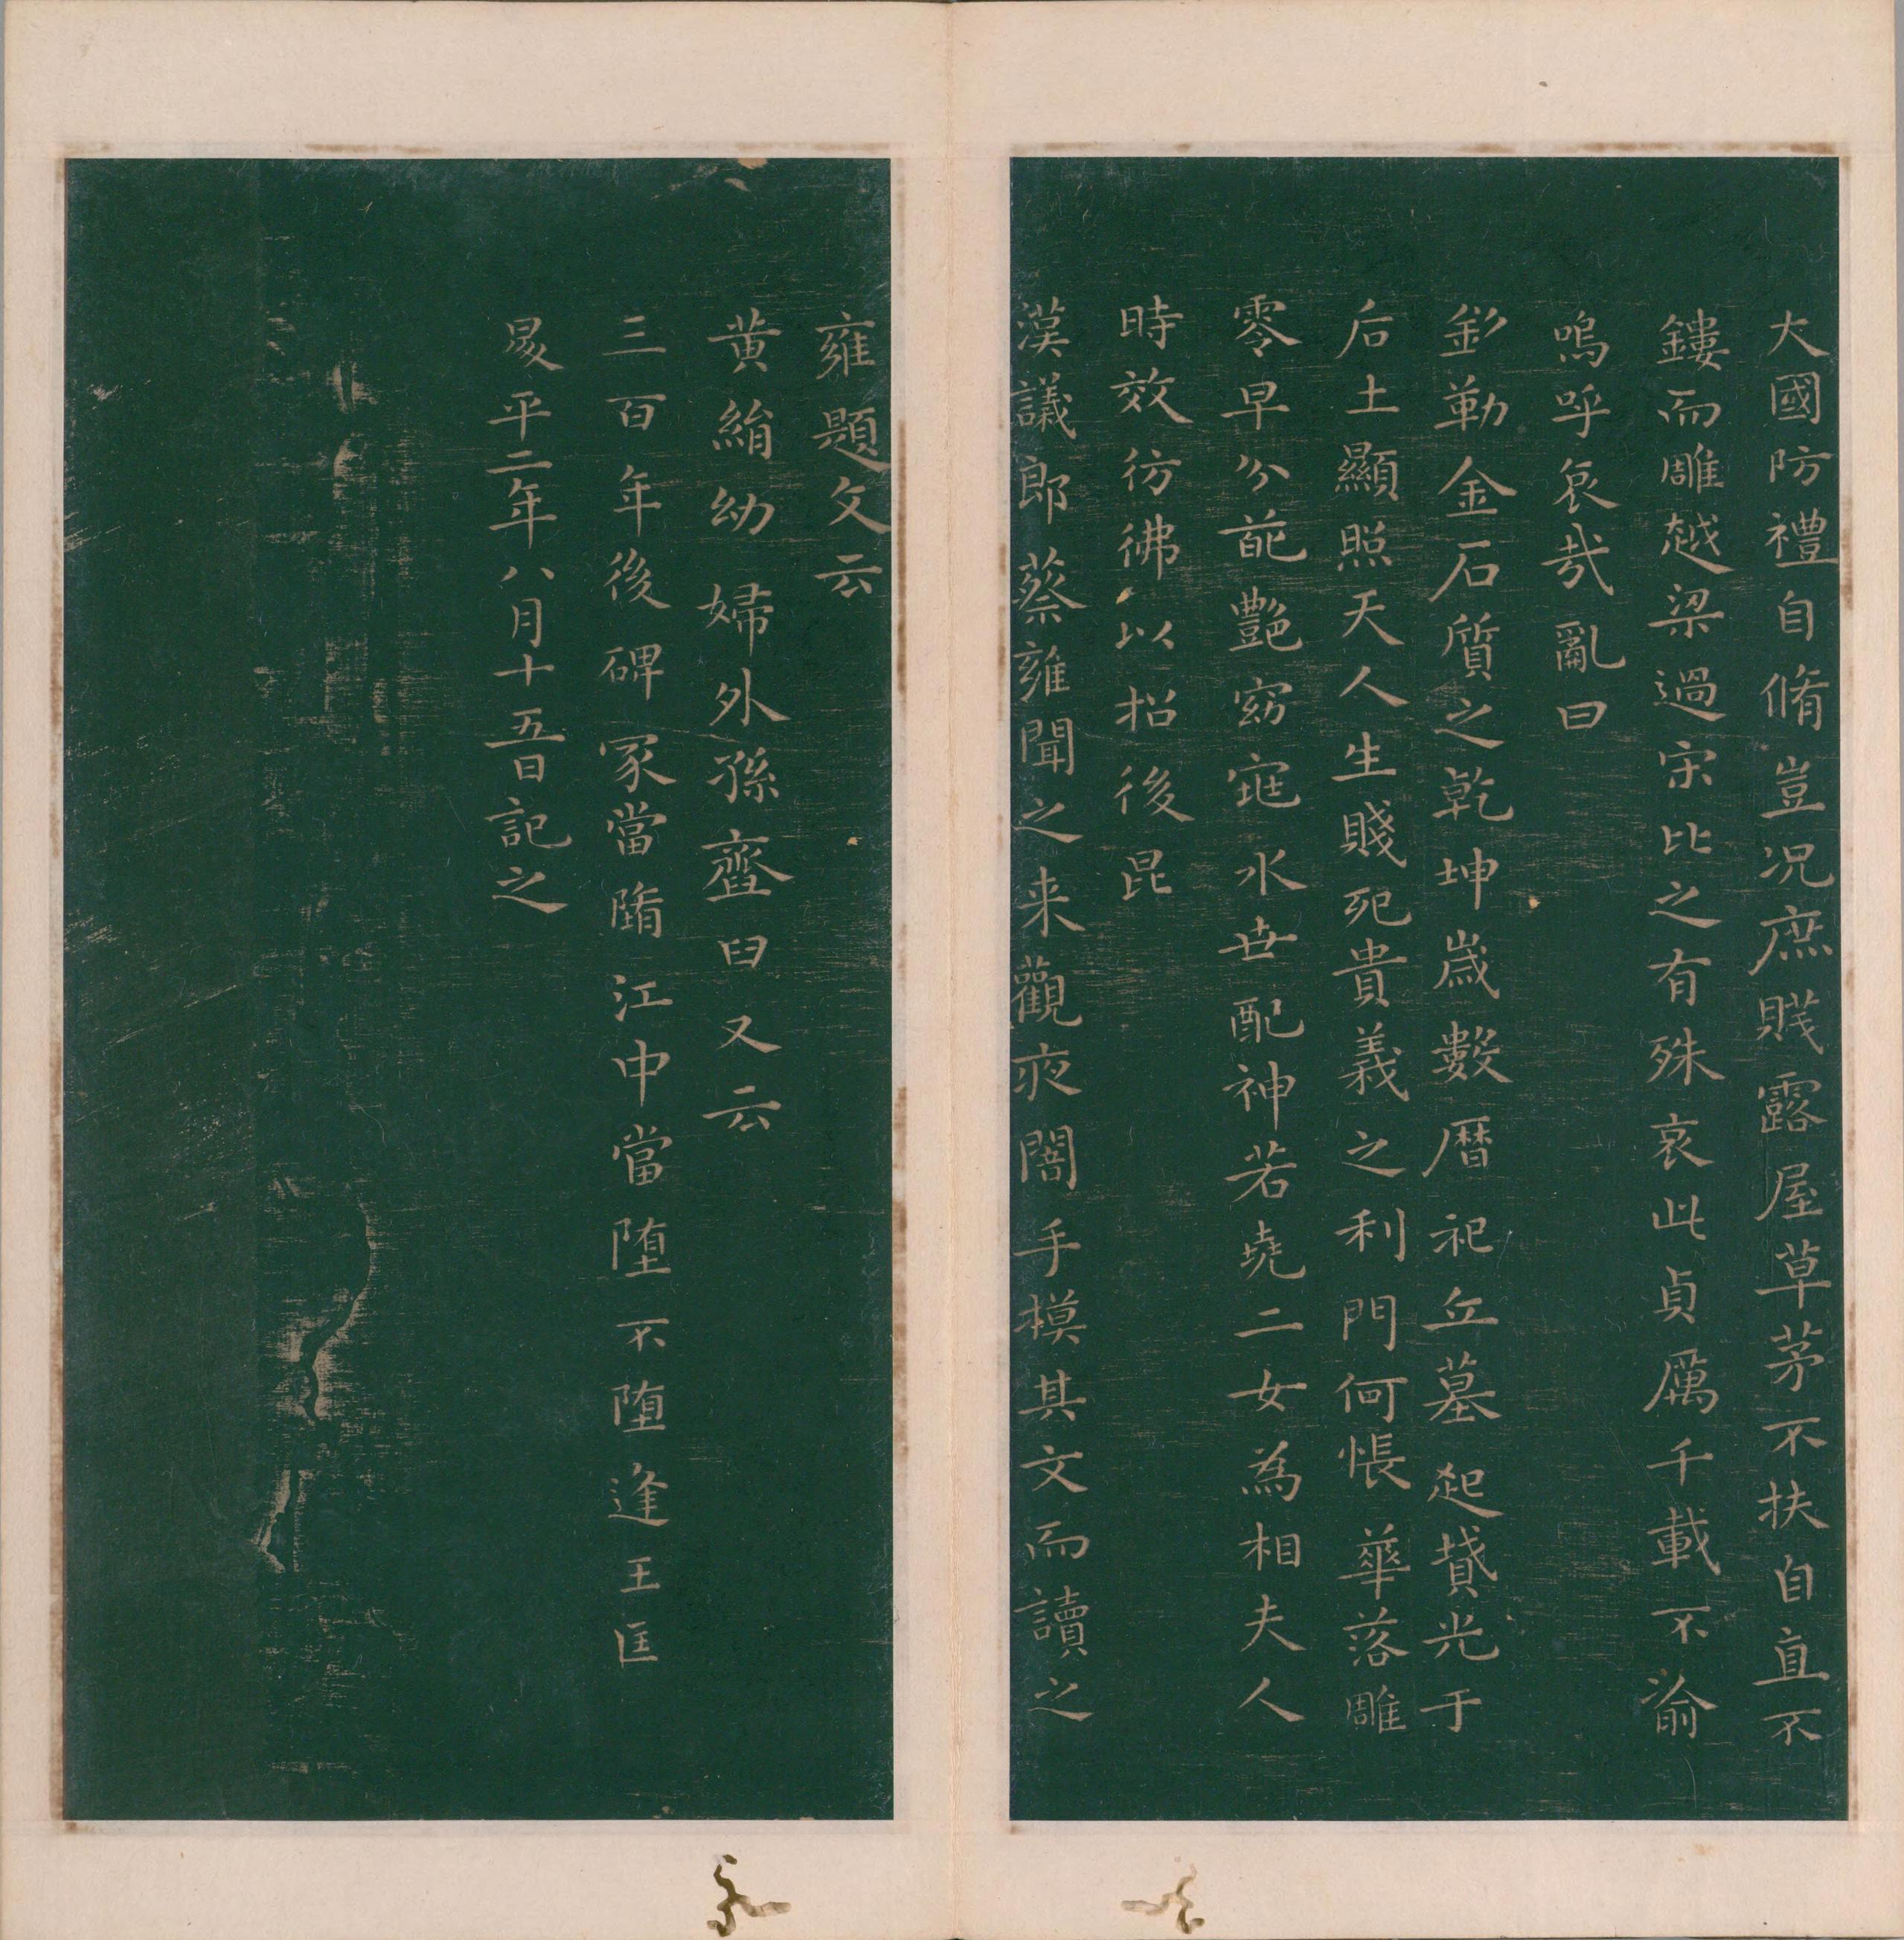 大國防禮自脩豈况庶賤露屋草茅不扶自直不
鏤而雕越梁過宋比之有殊哀此貞厲千載不渝
嗚呼哀哉亂曰
銘勒金石質之乾坤歲數曆祀丘墓起墳光于
后土顯照天人生賤死貴義之利門何悵華落雕
零早分葩艷窈窕永世配神若堯二女為相夫人
時效彷彿以招後昆
漢議郎蔡雍聞之来觀夜闇手摸其文而讀之
雍題文云
黃絹幼婦外孫齏臼又云
三百年後碑冢當墮江中當墮不墮逢王匡
昇平二年八月十五日記之